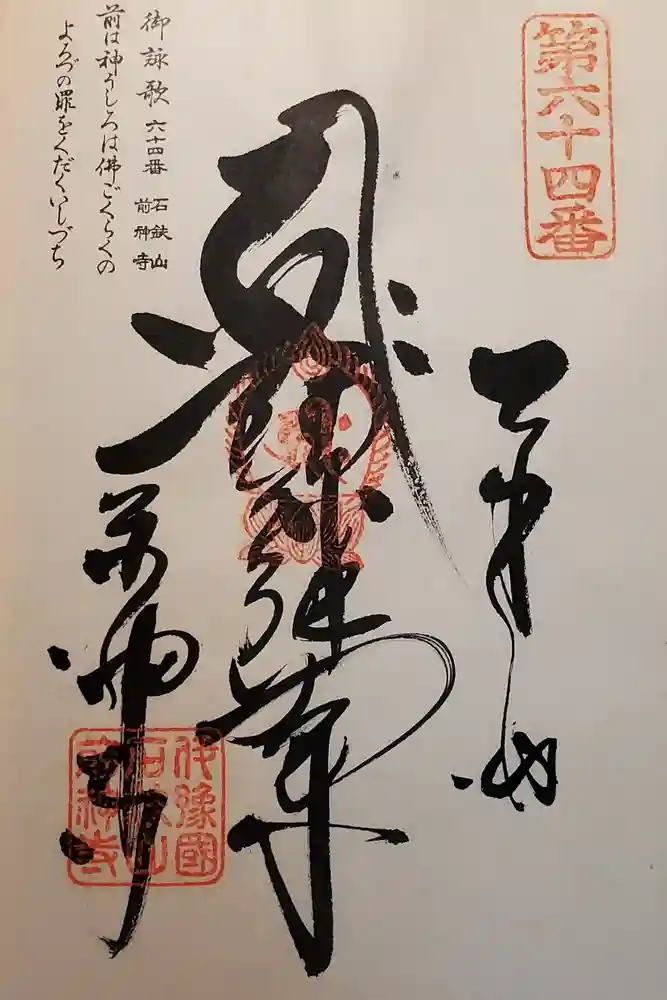 第六十四番
前神寺
伊豫國
石鉄山
前神寺
御詠歌 六十四番 石鉄山 前神寺
前は神うしろは佛ごくらくの
よろづの罪をくだくいしづち